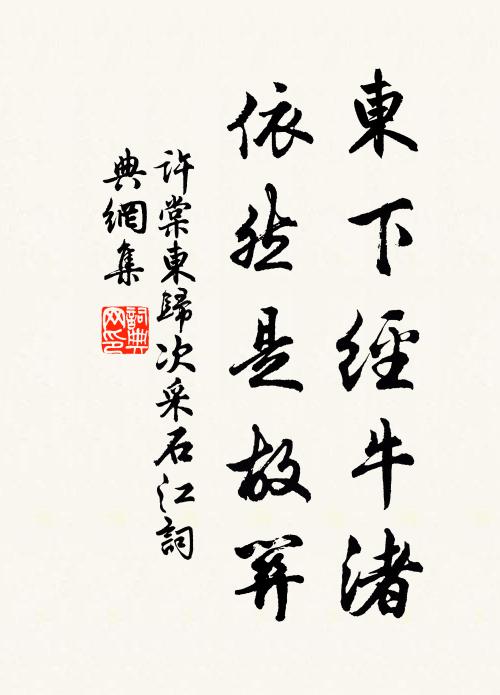 東下經牛渚
依然是故關
許棠東歸次采石江詞
典網集
詞典
网印